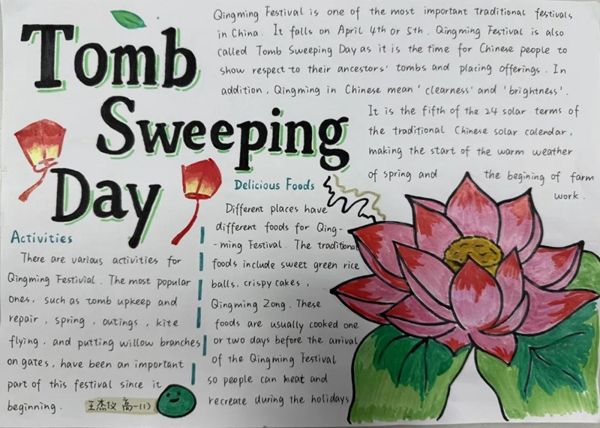 Tomb
Sweeping
Day
Qingming Festival is one of the most important traditional festivals
in China. It falls on April 4th or 5th. Qingming Festival is also
called Tomb Sweeping Day as it is the time for Chinese people to
show respect to their ancestors' tombs and placing offerings. In
addition, Qingming in Chinese mean 'clearness' and 'brightness'.
It is the fifth of the 24 solar terms of
the traditional Chinese solar calendar,
making the start of the warm weather
of spring and the begining of farm
work.
Activities
There are various activities for
Qingming Festivial. The most popular
ones, such as tomb upkeep and
repair, spring, outings, kite
flying, and putting willow branches
on gates, have been an important
part of this festival since it
beginning.
王杰仪 高一(1)
Delicious Foods
Different places have
different foods for Qing-
-ming Festival. The traditional
foods include sweet green rice
balls, crispy cakes,
Qingming Zong. These
foods are usually cooked one
or two days before the arrival
of the Qingming Festival
so people can meat and
recreate during the holidays